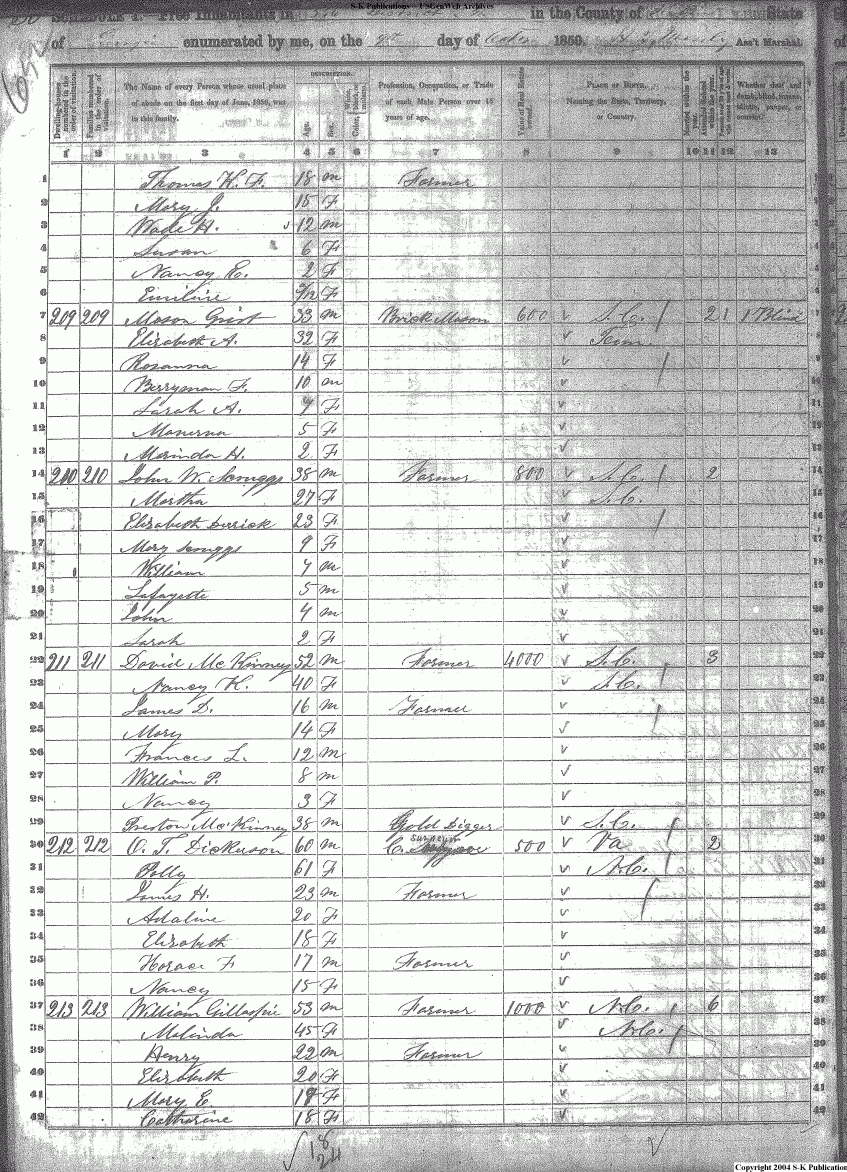 S-K Publications - USGenWeb Archives
SCHEDULE I. Free Inhabitants in District in the County of State
of Georgia enumerated by me, on the day of 1850. Ass't Marshal.
Dwelling-houses numbered in the order of visitation.
Families numbered in the order of visitation.
The Name of every Person whose usual place of abode on the first day of June, 1850, was in this family.
DESCRIPTION.
Age.
Sex.
Color, White, black, or mulatto.
Profession, Occupation, or Trade of each Male Person over 15 years of age.
Value of Real Estate owned.
PLACE OF BIRTH, Naming the State, Territory, or Country.
Married within the year.
Attended School within the year.
Whether deaf and dumb, blind, insane, idiotic, pauper, or convict.
1 2 3 4 5 6 7 8 9 10 11 12 13
1 Thomas K. F. 18 m Farmer
2 Mary J. 15 F
3 Wade H. 12 m
4 Susan 6 F
5 Nancy E. 2 F
6 Emiline /12 F
7 209 209 Mason Grist 33 m Brick Mason 600 S.C. 2 1 1 Blind
8 Elizabeth A. 32 F Tenn
9 Rosanna 14 F
10 Berryman F. 10 m
11 Sarah A. 7 F
12 Manerva 5 F
13 Marinda H. 2 F
14 210 210 John W. Scruggs 38 m Farmer 800 S.C. 2
15 Martha 27 F S.C.
16 Elizabeth 23 F
17 Mary Scruggs 9 F
18 William 7 m
19 Lafayette 5 m
20 John 4 m
21 Sarah 2 F
22 211 211 David McKinney 52 m Farmer 4000 S.C. 3
23 Nancy K. 40 F S.C.
24 James D. 16 m Farmer
25 Mary 14 F
26 Frances L. 12 m
27 William P. 8 m
28 Nancy 3 F
29 Preston McKinney 38 m Gold Digger S.C.
30 212 212 O. T. Dickerson 60 m C. Surveyor 500 Va 2
31 Polly 61 F N.C.
32 James H. 23 m Farmer
33 Adaline 20 F
34 Elizabeth 18 F
35 Horace F 17 m Farmer
36 Nancy 15 F
37 213 213 William Gillaspie 53 m Farmer 1000 N.C. 6
38 Malinda 45 F N.C.
39 Henry 22 m Farmer
40 Elizabeth 20 F
41 Mary E. 19 F
42 Catharine 18 F
18
24
Copyright 2004 S-K Publications